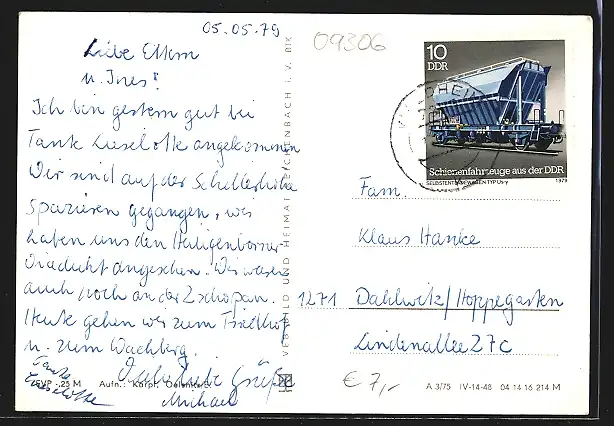 05.05.79
09306
Liebe Eltern
u. Ines!
Ich bin gestern gut bei
Tante Lieselotte angekommen
Wir sind auf der Schellerhöhe
spazieren gegangen, wir
haben uns den Heiligenborner
Viadukt angesehen. Wir waren
auch noch an der Zschopau.
Heute gehen wir zum Friedhof
u. zum Wachberg.
Viele liebe Grüße
Michael
Tante
Lieselotte
EVP -,25 M Aufn.: Karpf, Oelsnitz/E.
VEB BILD UND HEIMAT REICHENBACH i. V. BIK
10
DDR
Schienenfahrzeuge aus der DDR
SELBSTENTLADEWAGEN TYP Us-y 1979
Fam.
Klaus Hanke
1271 Dahlwitz/Hoppegarten
Lindenallee 27c
€ 7,-
A 3/75 IV-14-48 04 14 16 214 M